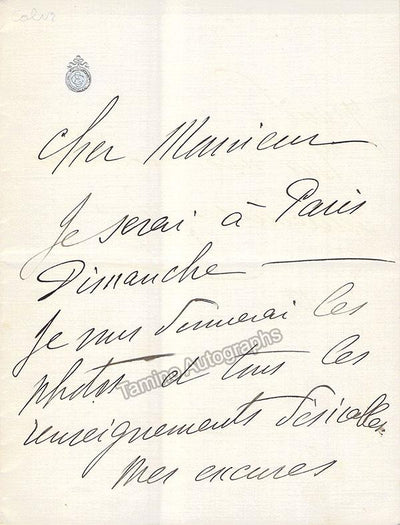 Calvé
Cher Monsieur
Je serai à Paris
Dimanche —
Je vous donnerai les
photos et tous les
renseignements désirables
Mes excuses
Tamino Autographs